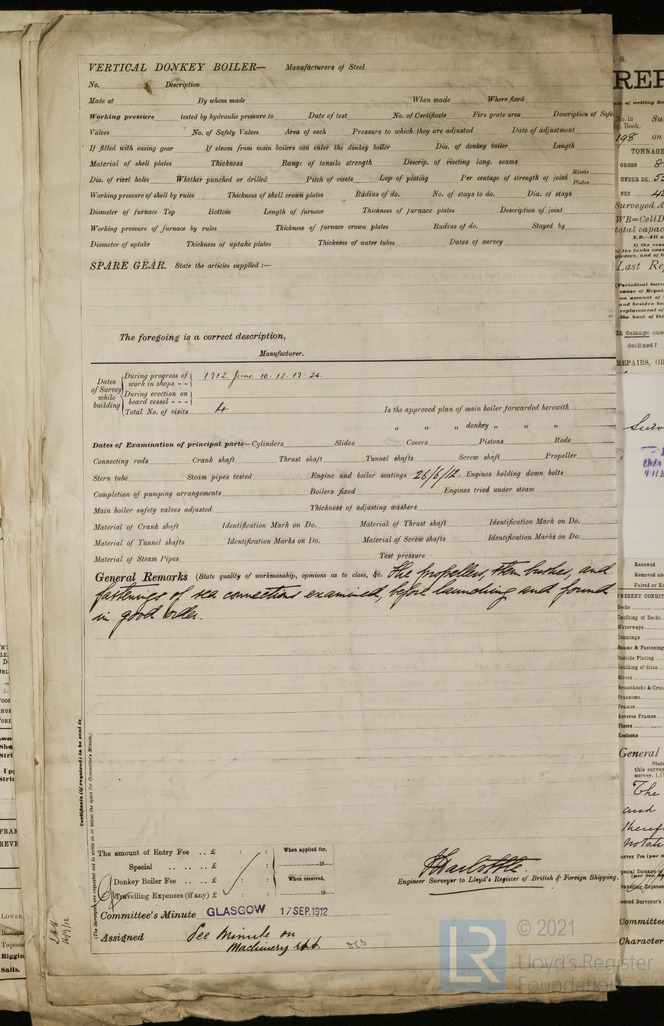 VERTICAL DONKEY BOILER— Manufacturers of Steel
No. Description
Made at By whom made When made Where fixed
Working pressure tested by hydraulic pressure to Date of test No. of Certificate Fire grate area Description of Safe
Valves No. of Safety Valves Area of each Pressure to which they are adjusted Date of adjustment
If fitted with easing gear If steam from main boilers can enter the donkey boiler Dia. of donkey boiler Length
Material of shell plates Thickness Range of tensile strength Descrip. of riveting long. seams
Dia. of rivet holes Whether punched or drilled Pitch of rivets Lap of plating Per centage of strength of joint Rivets Plates
Working pressure of shell by rules Thickness of shell crown plates Radius of do. No. of stays to do. Dia. of stays
Diameter of furnace Top Bottom Length of furnace Thickness of furnace plates Description of joint
Working pressure of furnace by rules Thickness of furnace crown plates Radius of do. Stayed by
Diameter of uptake Thickness of uptake plates Thickness of water tubes Dates of survey
SPARE GEAR. State the articles supplied :—
The foregoing is a correct description,
Manufacturer.
Dates of Survey while building
During progress of work in shops - - 1912 June 10. 17. 19. 26.
During erection on board vessel - - -
Total No. of visits 4 Is the approved plan of main boiler forwarded herewith
" " " donkey " " "
Dates of Examination of principal parts—Cylinders Slides Covers Pistons Rods
Connecting rods Crank shaft Thrust shaft Tunnel shafts Screw shaft Propeller
Stern tube Steam pipes tested Engine and boiler seatings 26/6/12. Engines holding down bolts
Completion of pumping arrangements Boilers fixed Engines tried under steam
Main boiler safety valves adjusted Thickness of adjusting washers
Material of Crank shaft Identification Mark on Do. Material of Thrust shaft Identification Mark on Do.
Material of Tunnel shafts Identification Marks on Do. Material of Screw shafts Identification Marks on Do.
Material of Steam Pipes Test pressure
General Remarks (State quality of workmanship, opinions as to class, &c. The propellers, stern bushes, and
fastenings of sea connections examined, before launching and found
in good order.
Certificate (if required) to be sent to
(The Surveyors are requested not to write on or below the space for Committee's Minute.)
The amount of Entry Fee .. £ : : When applied for,
Special .. .. £ : : 19
Donkey Boiler Fee .. .. £ : : When received,
Travelling Expenses (if any) £ : : 19
Engineer Surveyor to Lloyd's Register of British & Foreign Shipping.
Committee's Minute GLASGOW 17 SEP. 1912
Assigned See Minute on
Machinery rpt.
16/9/12
© 2021
LR
Lloyd's Register
Foundation
REP
No. in
Reg. Book.
198 on
TONNAGE
GROSS
UNDER DK.
NET
Surveyed A
WB=CellD
total capac
Last Re
In damage case
declined?
REPAIRS, OR
Renewed
Removed and
Faired or Re
PRESENT CONDIT
Decks
Caulking of Decks
Waterways
Coamings
Beams & Fastening
Outside Plating
Caulking of ditto
Rivets
Breasthooks & Crut
Transoms
Frames
Reverse Frames
Floors
Keelsons
General
The
and
Committee
Character